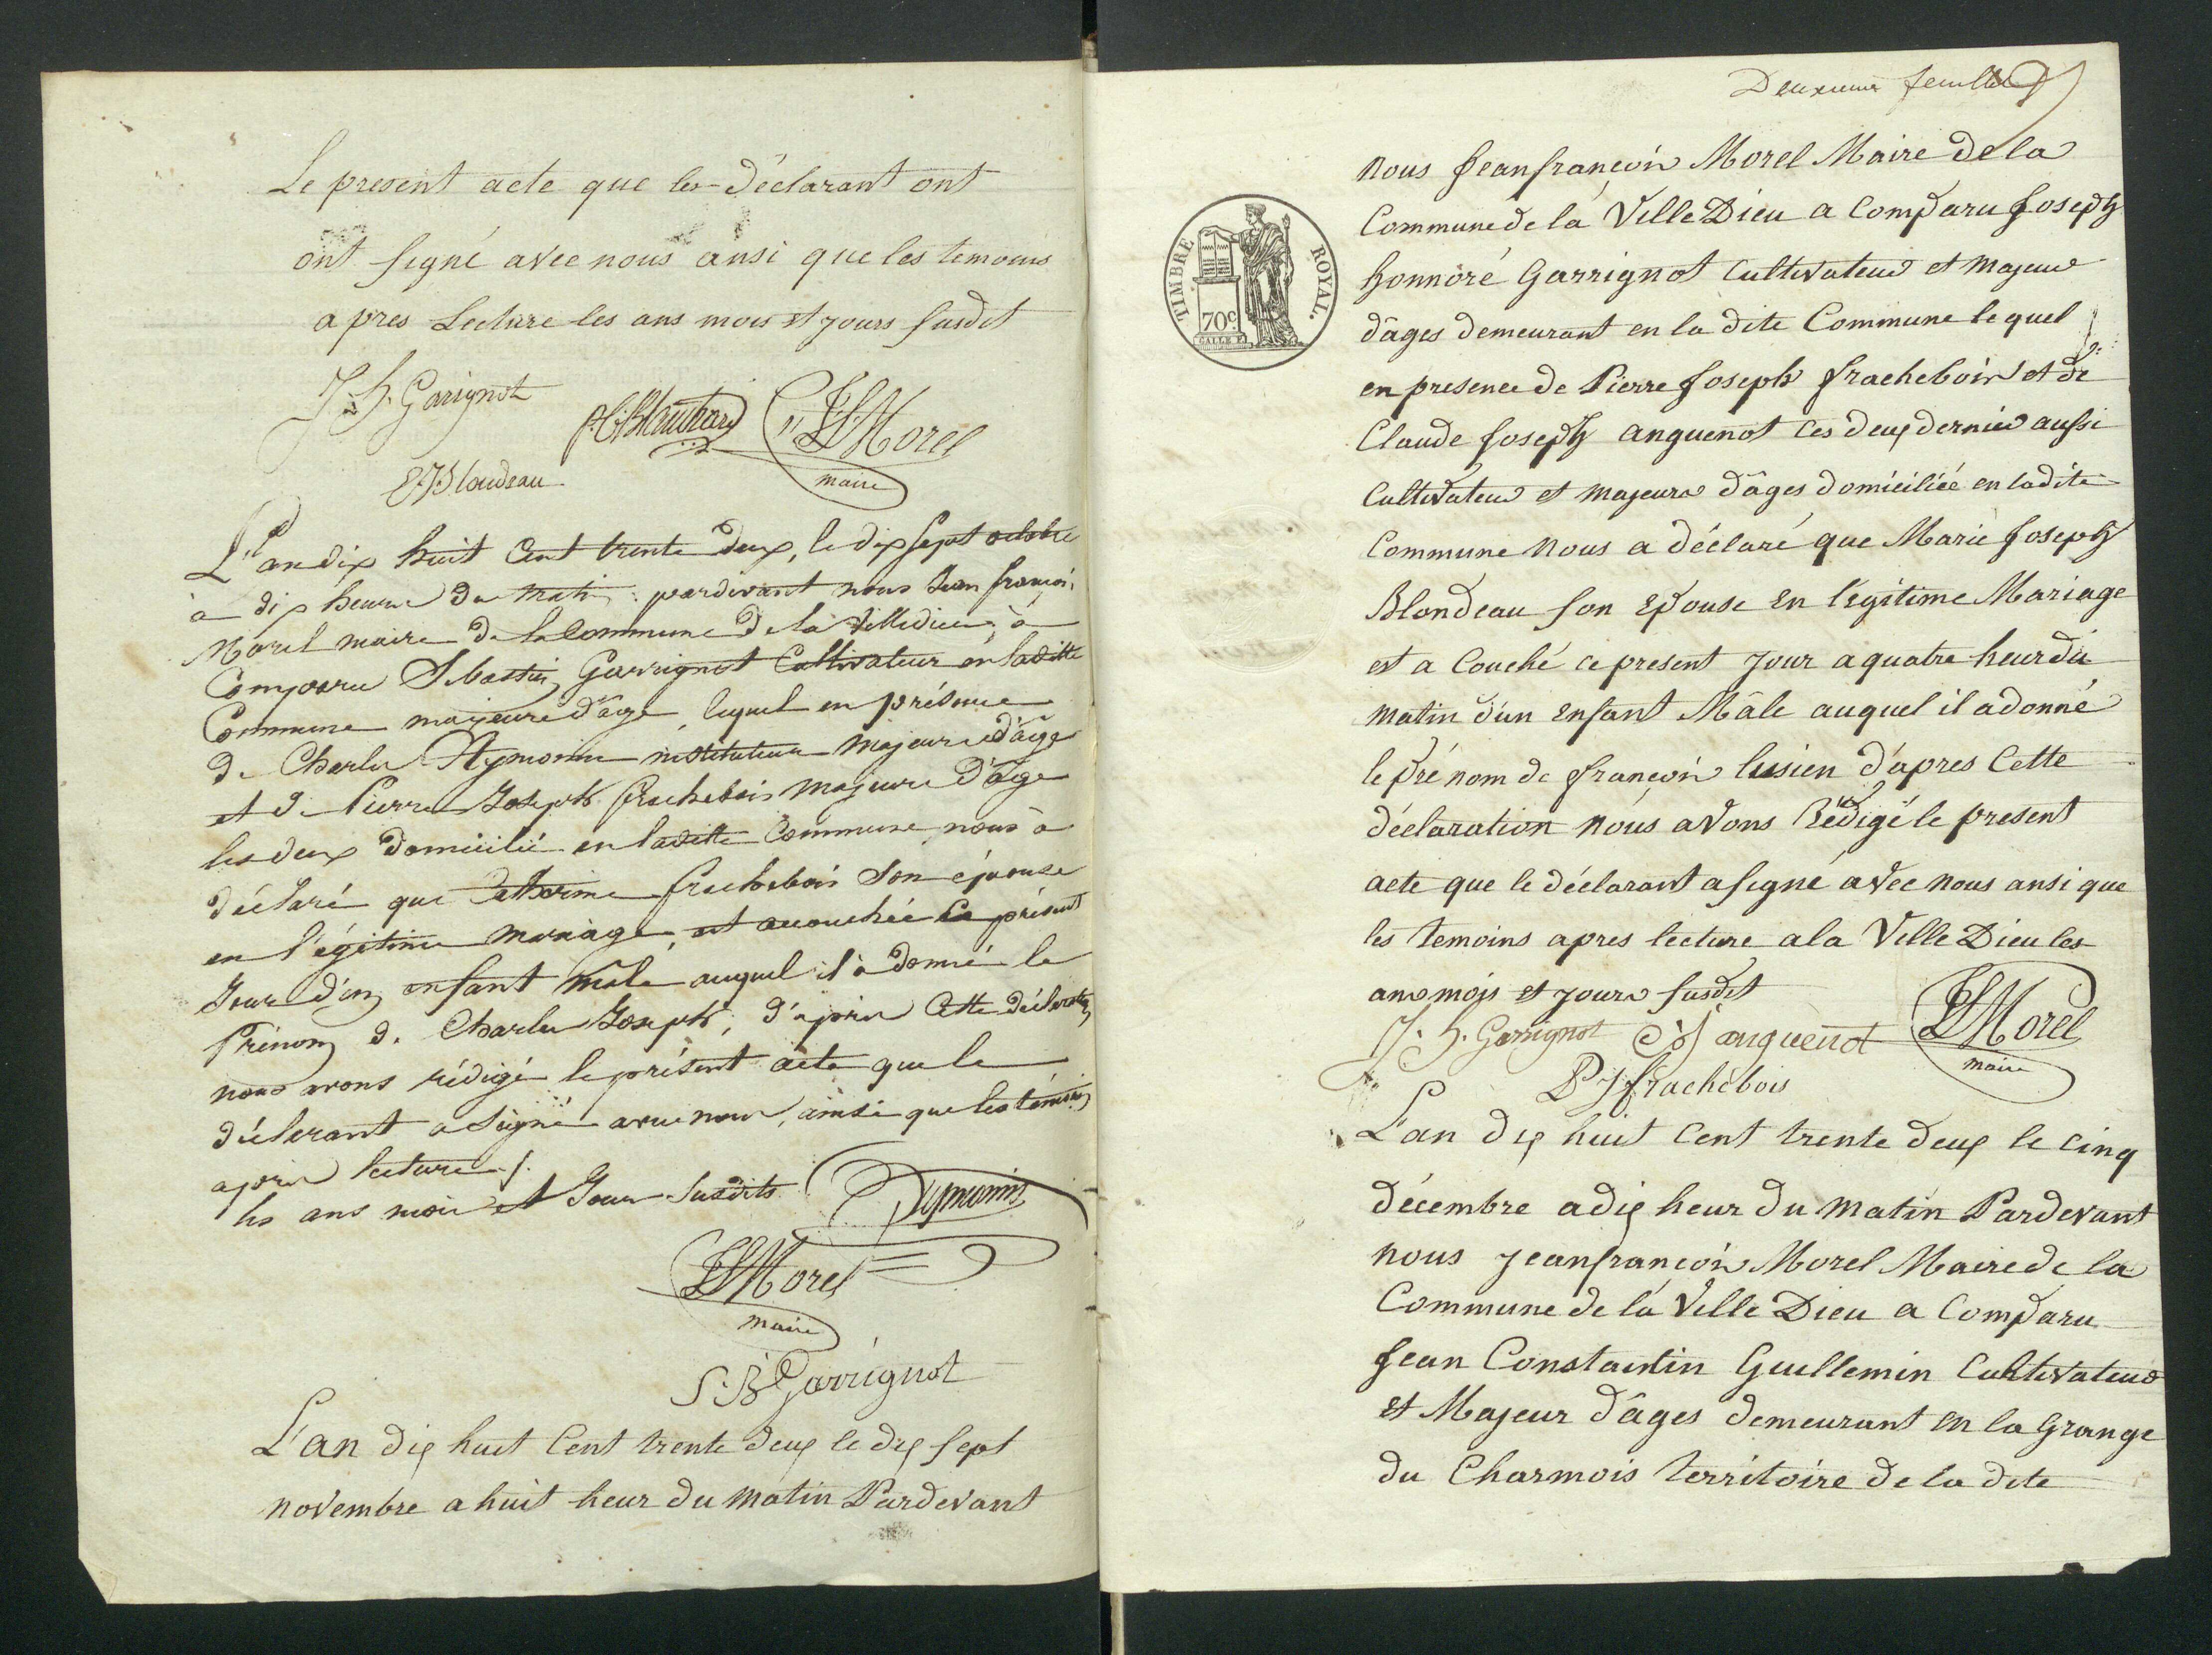 Le present acte que les déclarant ont
ont signé avec nous ansi que les temoins
apres Lecture les ans mois et jours susdit
J. H. Garrignot
JF Morel
maire
Blondeau
L'an dix huit Cent trente deux, le dix sept octobre
à dix heures du matin pardevant nous Jean françois
Morel maire de la Commune de la Villedieu, à
Comparu Sébastien Garrignot Cultivateur en laditte
Commune majeure d'âge, lequel en présence
de Charles Aymonin instituteur majeure d'âge
et de Pierre Joseph frachebois majeure d'âge
les deux domicilié en laditte Commune, nous à
déclaré que Catherine frachebois son épouse
en légitime mariage, est acouchée Ce présent
Jour d'un enfant mâle auquel il à donné le
Prénom de Charles Joseph, d'après Cette déclaration
nous avons rédigé le présent acte que le
déclarant a signé avec nous, ainsi que les témoins
après lecture ./.
les ans mois et Jour susdits
Aymonin
JF Morel
maire
S. B Garrignot
L'an dix huit Cent trente deux le dix sept
novembre a huit heur du matin Pardevant
Deuxieme feuillet
TIMBRE ROYAL.
70c
nous Jeanfrançois Morel Maire de la
Commune de la Ville Dieu a Comparu Joseph
honnoré Garrignot Cultivateur et majeur
d'âges demeurant en la dite Commune lequel
en presence de Pierre Joseph frachebois et de
Claude Joseph anguenot les deux dernier aussi
Cultivateur et majeurs d'âges domiciliéé en la dite
Commune nous a déclaré que Marie Joseph
Blondeau son Epouse en legitime Mariage
est a Couché ce present jour a quatre heur du
matin d'un enfant Mâle auquel il a donné
le pré nom de françois lusien d'apres Cette
déclaration nous avons Rédigé le present
acte que le déclarant a signé avec nous ansi que
les temoins apres lecture a la Ville Dieu les
ans mois et jours susdit
J. H. Garrignot
anguenot
JF Morel
maire
P J frachebois
L'an dix huit Cent trente deux le cinq
décembre a dix heur du matin Pardevant
nous jeanfrançois Morel Maire de la
Commune de la Ville Dieu a Comparu
Jean Constantin Guillemin Cultivateur
et Majeur d'âges demeurant en la Grange
du Charmois territoire de la dite